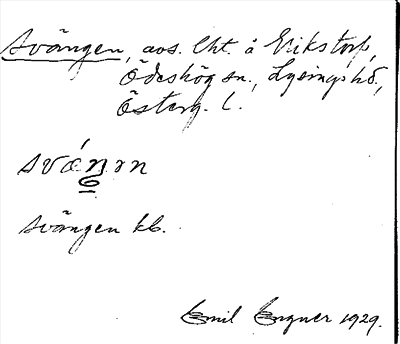 Svängen, avs. lht. å Erikstorp,
Ödeshög sn., Lysings hd,
Österg. l.
svǽŋən
svängen kb.
Emil Engner 1929.